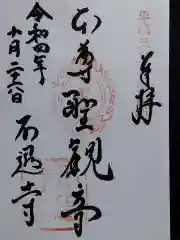 奉拝
本尊聖観音
令和四年
十月二十六日
不退寺